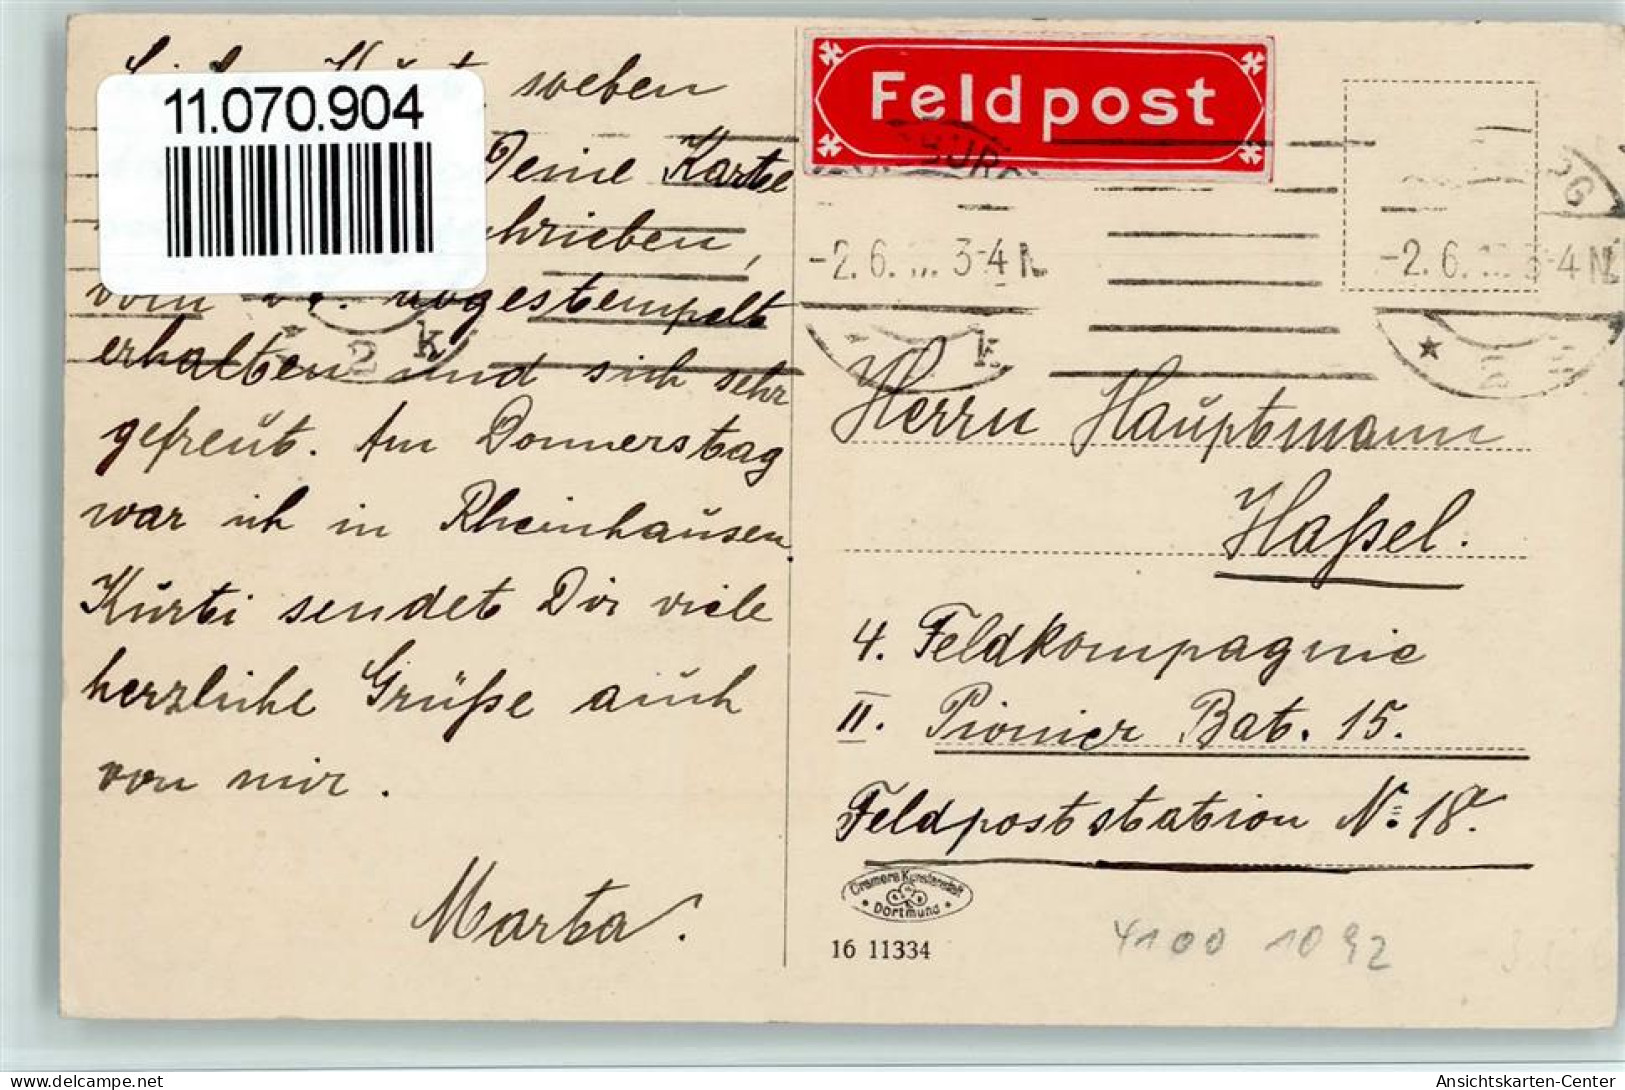 soeben
11.070.904
Deine Karte
vom abgestempelt
erhalten und sich sehr
gefreut. Am Donnerstag
war ich in Rheinhausen.
Kurti sendet Dir viele
herzliche Grüße auch
von mir.
Marta.
Feldpost
-2.6. 3-4 N
-2.6. 3-4 N
2 k
k
Herrn Hauptmann
Haßel.
4. Feldkompagnie
II. Pionier Bat. 15.
Feldpoststation No. 18.
Cramers Kunstanstalt
Dortmund
16 11334
4100 1092
Ansichtskarten-Center